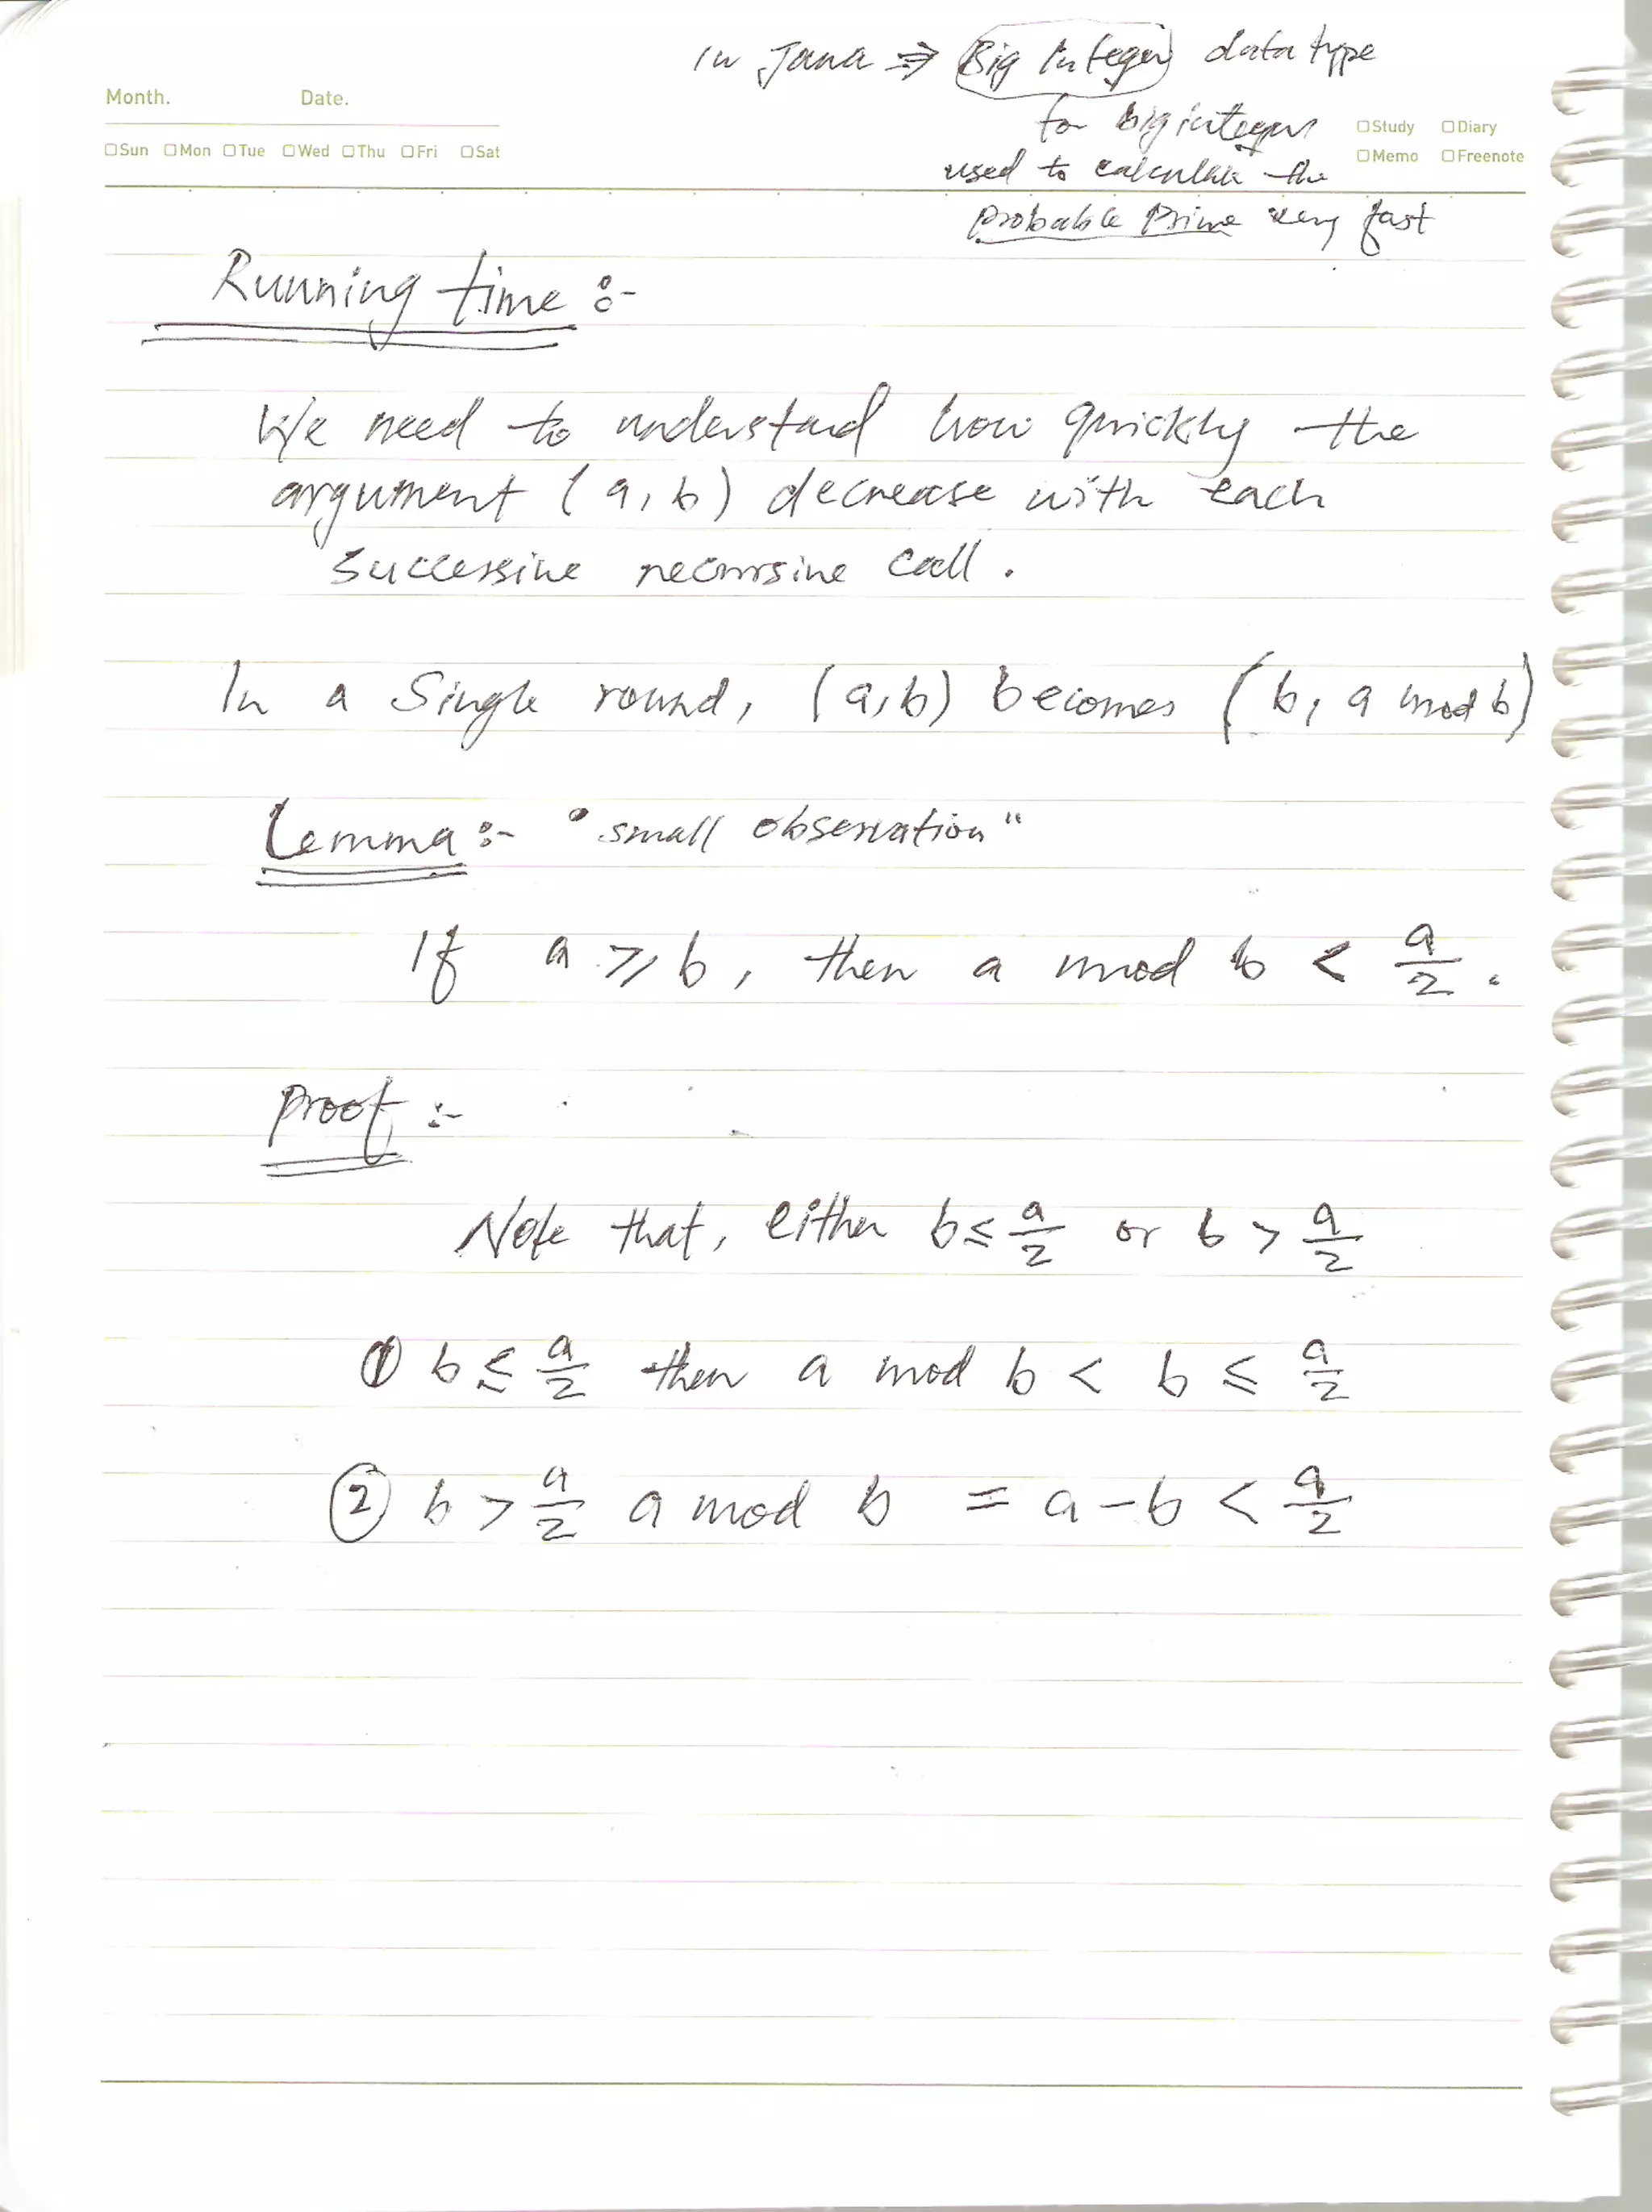 In Java ⇒ Big Integer data type
for big integers
used to calculate the
Probable Prime very fast
Month. Date.
□Sun □Mon □Tue □Wed □Thu □Fri □Sat
□Study □Diary
□Memo □Freenote
Running time :-
We need to understand how quickly the
argument (a, b) decrease with each
successive recursive call.
In a single round, (a, b) becomes (b, a mod b)
Lemma :- "small observation"
If a ≥ b, then a mod b < a/2.
Proof :-
Note that, either b ≤ a/2 or b > a/2
① b ≤ a/2 then a mod b < b ≤ a/2
② b > a/2 a mod b = a - b < a/2